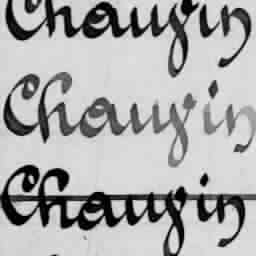 Chauyin
Chauyin
Chauyin